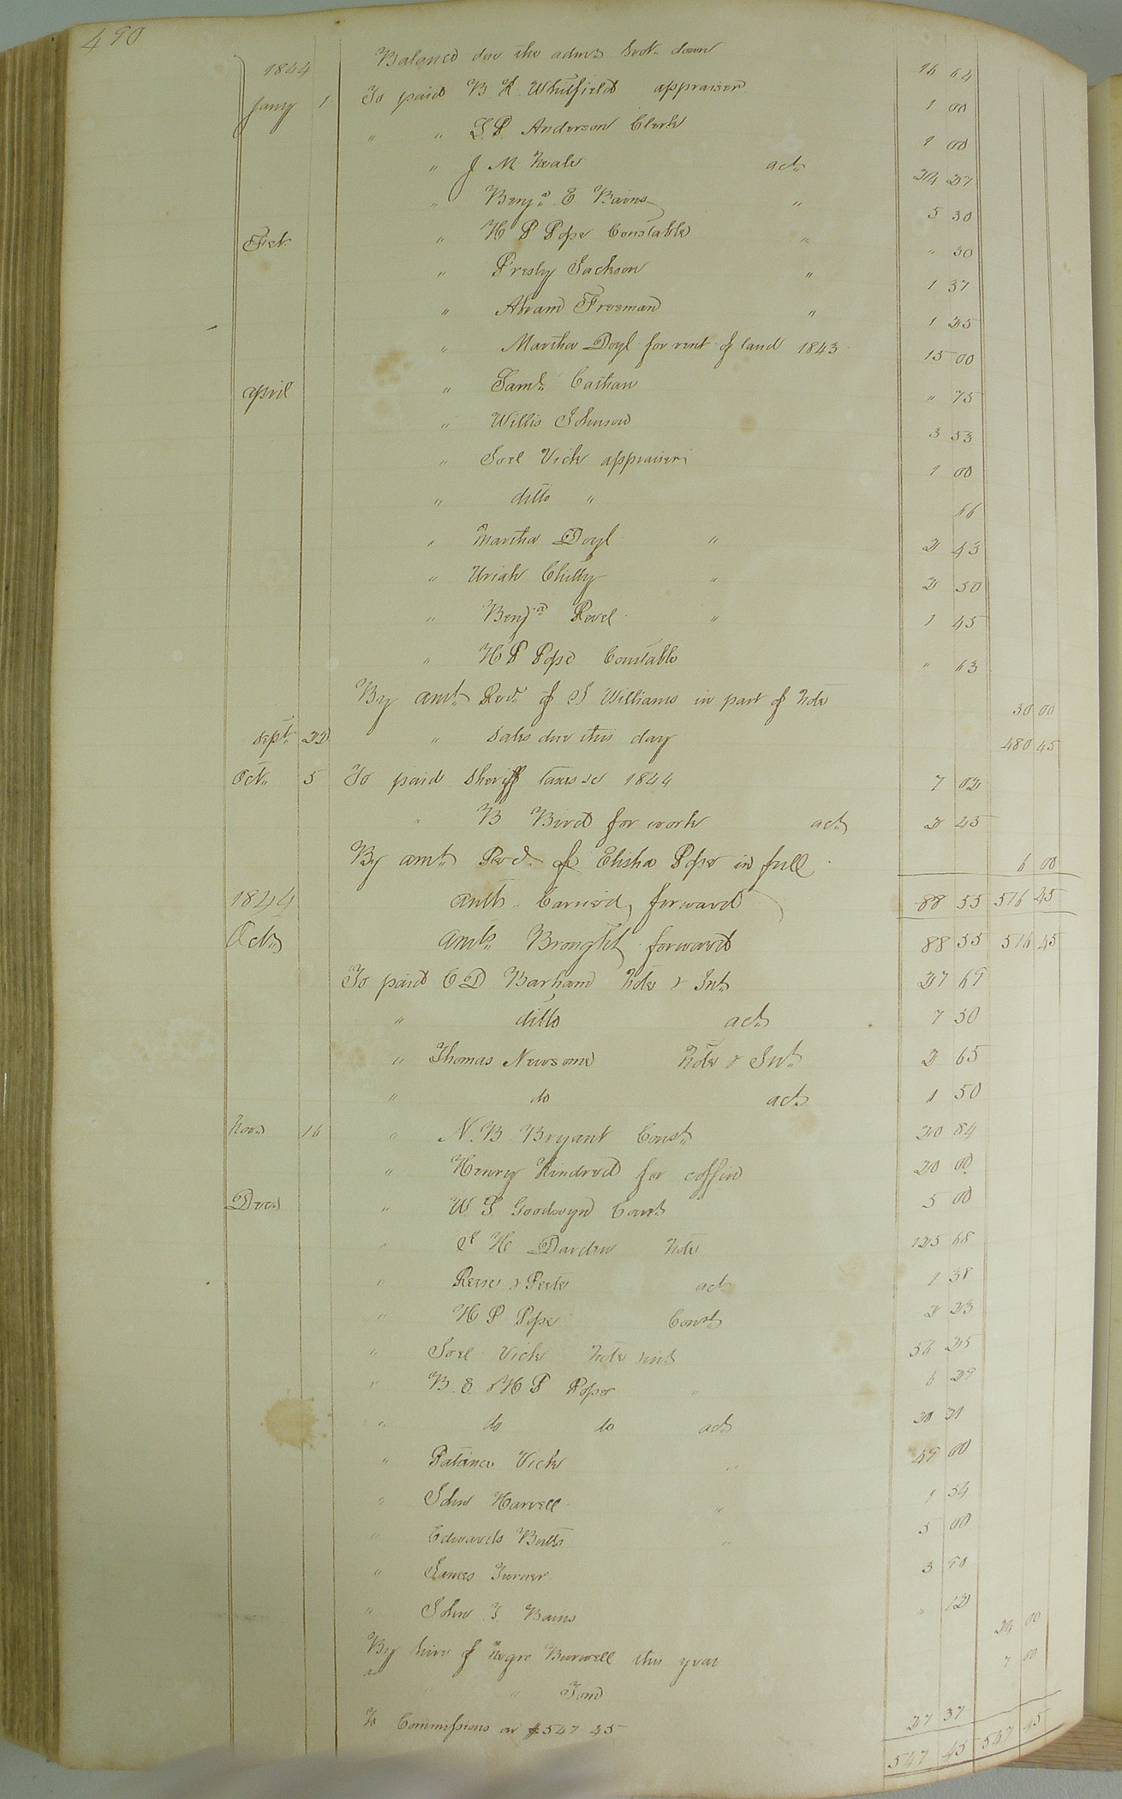 490
1844 Balance due the adm: brot. down 16 64
Jany 1 To paid B H Whitfield appraiser 1 00
" " L P Anderson Clerk 1 00
" J M Neale act
" Benj:n E Bains " 5 30
Feb. " H P Pope Constable " " 50
" Presly Jackson " 1 37
" Abram Freeman " 1 25
" Martha Doyl for rent of land 1843 15 00
April " Saml: " 75
" Willis Johnson 3 53
" Joel Vick appraiser 1 00
" ditto " 66
" Martha Doyl " 2 43
" Uriah Chitty " 2 50
" Benj.n Povel " 1 45
" H P Pope Constable " 63
By amt. Recd. of J Williams in part of Note 30 00
Sept. 22 " Sales due this day 480 45
Oct. 5 To paid Sheriff taxes &c 1844 7 02
" B Bird for work act 2 45
By amt. Recd. of Elisha Pope in full 6 00
1844 amts Carried, forward 88 55 516 45
Oct. amts. Brought forward 88 55 516 45
To paid C D Barham Note & Int 27 69
" ditto act 7 50
" Thomas Newsome Note & Int 2 65
" do act 1 50
Nov. 16 " N. B Bryant Const. 20 84
" Henry Kindred for coffin 20 00
Dec. " W. T. Goodwyn Const 5 00
" J H Darden Note 125 68
" Reese & Peete act 1 38
" H P Pope Const 2 23
" Joel Vick Note & int 56 25
" B. E. & H P Pope " 6 29
" do do act
" Patience Vick " 49 00
" John Harvell " 1 54
" Edwards Butts " 5 00
" James Turner 3 90
" John T. Bains " 12
By hire of Negro Burwell this year 24 00
" " Tom 7 00
To Commissions on $547 45 27 37
547 45 547 45